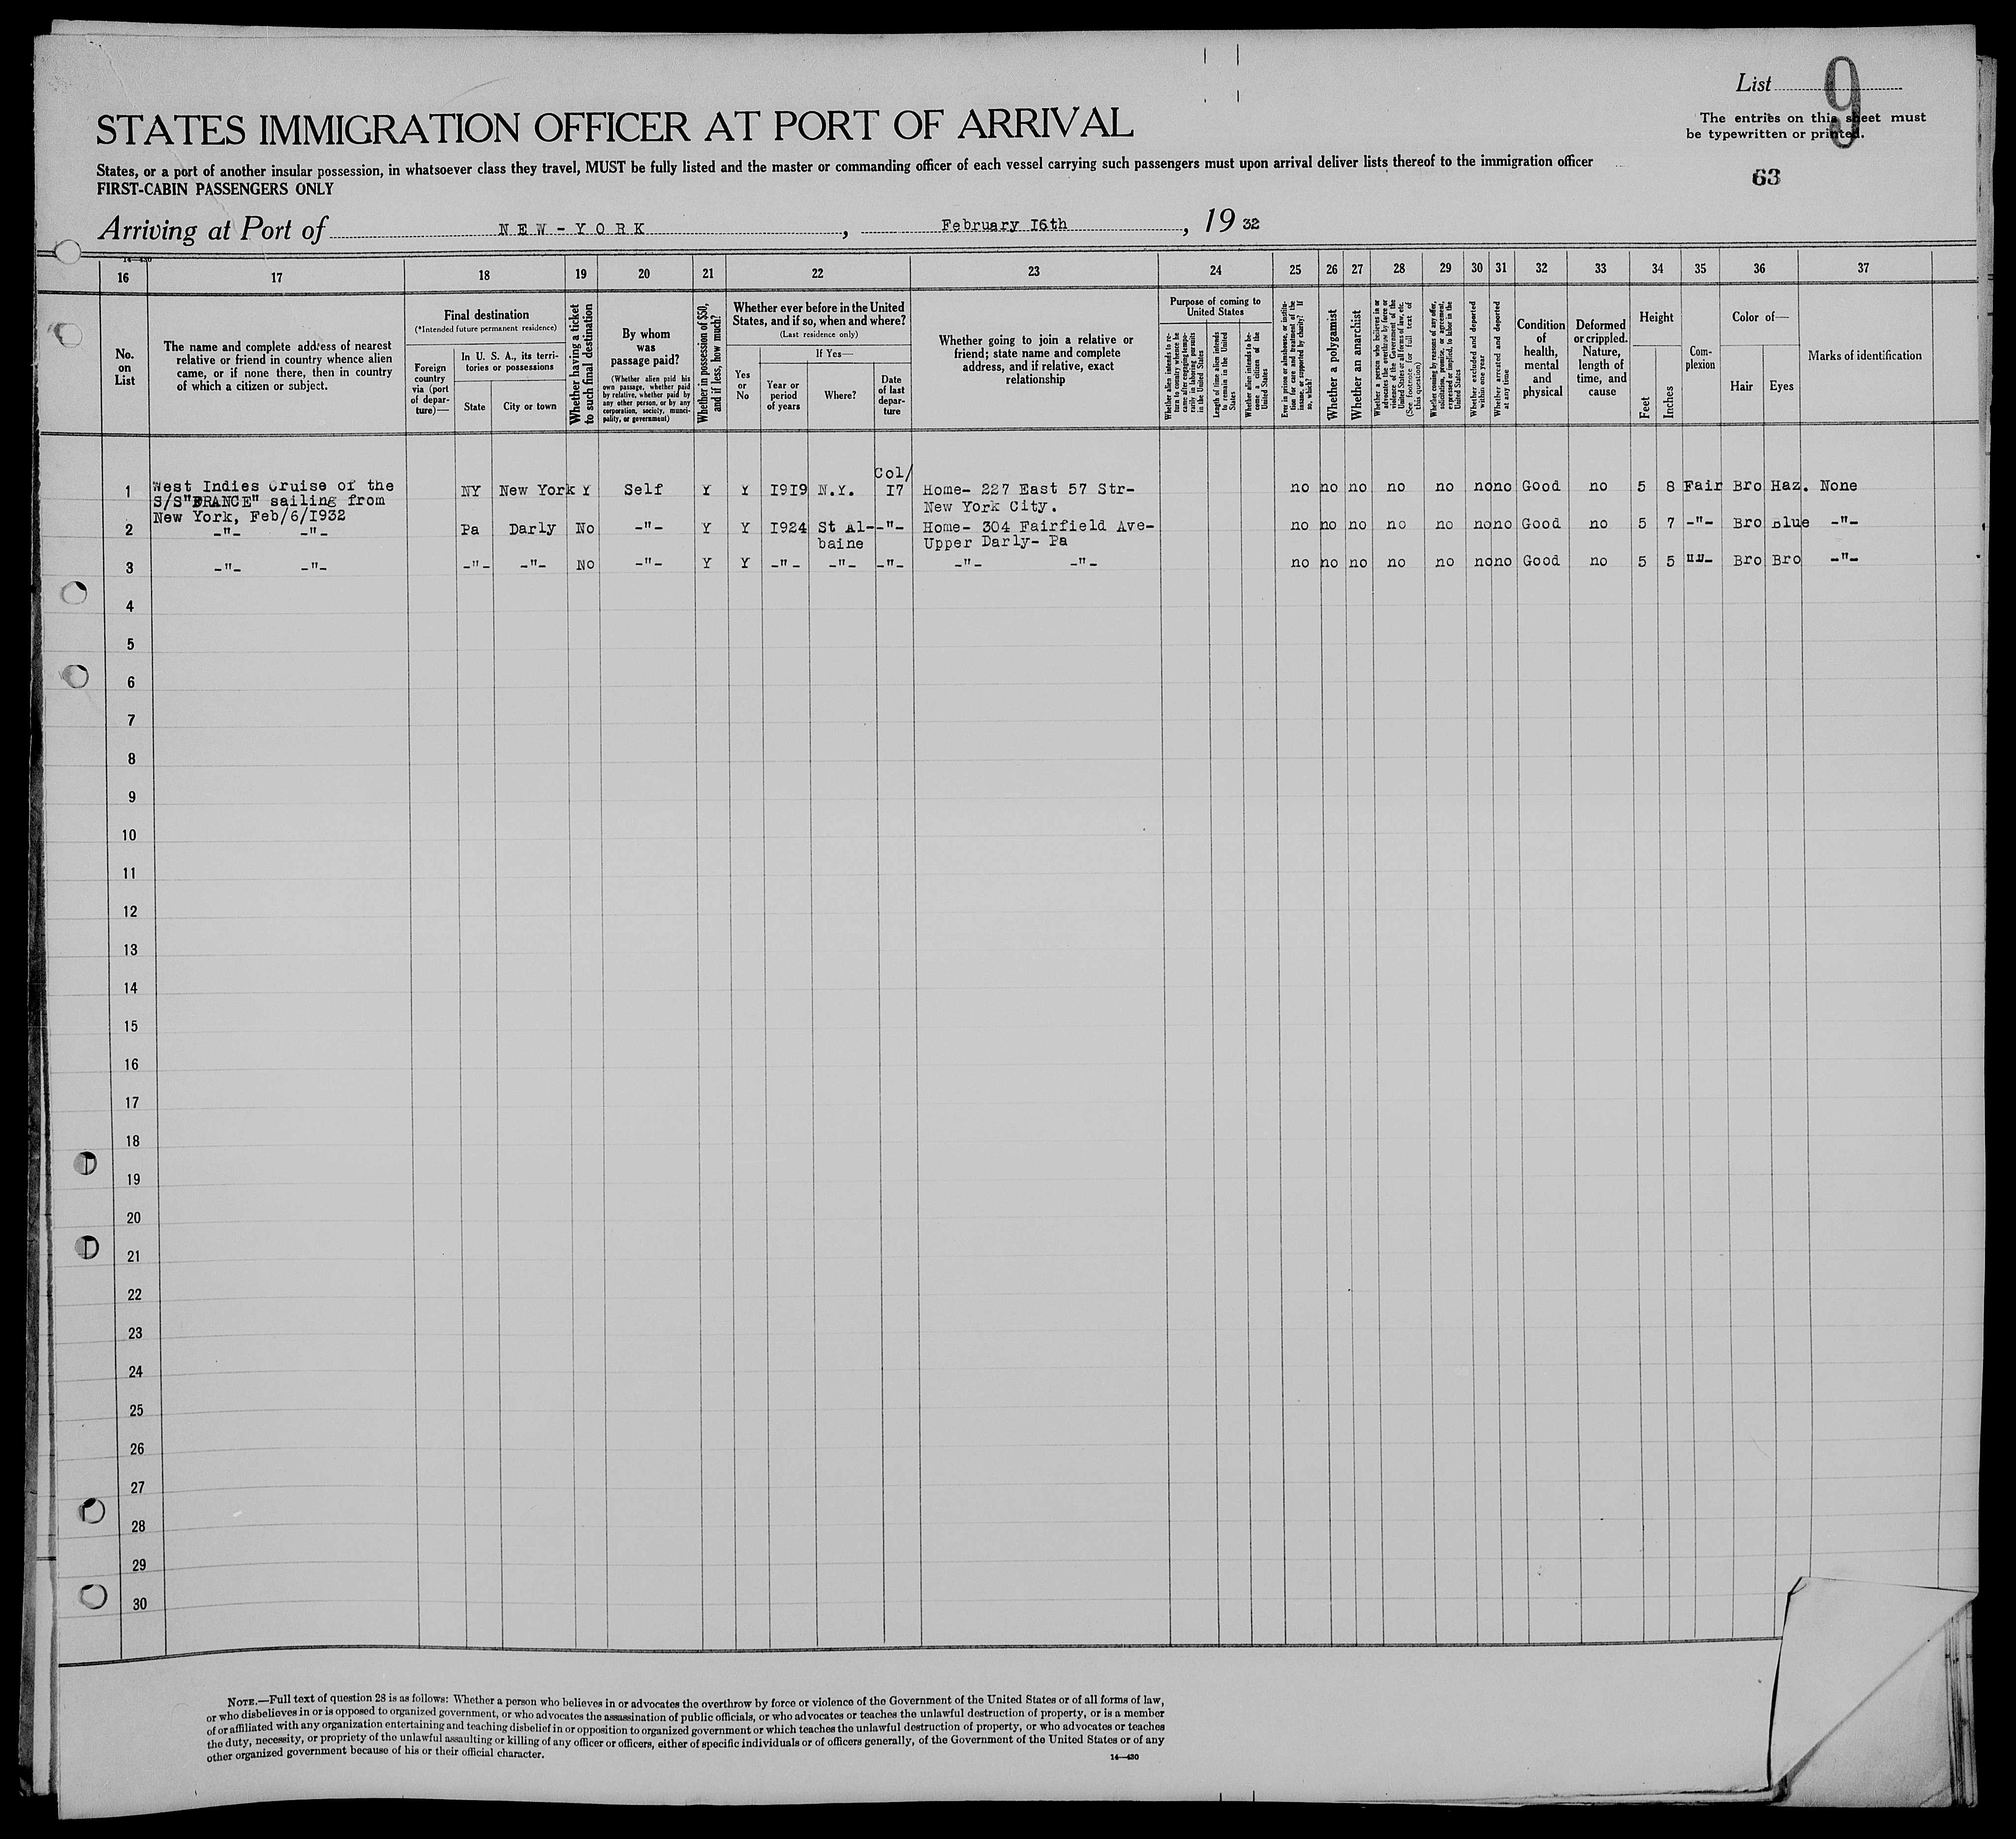 List 9
The entries on this sheet must
be typewritten or printed.
63
STATES IMMIGRATION OFFICER AT PORT OF ARRIVAL
States, or a port of another insular possession, in whatsoever class they travel, MUST be fully listed and the master or commanding officer of each vessel carrying such passengers must upon arrival deliver lists thereof to the immigration officer
FIRST-CABIN PASSENGERS ONLY
Arriving at Port of NEW-YORK, February 16th, 19 32
14-430
16 17 18 19 20 21 22 23 24 25 26 27 28 29 30 31 32 33 34 35 36 37
No.
on
List
The name and complete address of nearest
relative or friend in country whence alien
came, or if none there, then in country
of which a citizen or subject.
Final destination
(*Intended future permanent residence)
Foreign
country
via (port
of depar-
ture)—
In U. S. A., its terri-
tories or possessions
State
City or town
Whether having a ticket
to such final destination
By whom
was
passage paid?
(Whether alien paid his
own passage, whether paid
by relative, whether paid by
any other person, or by any
corporation, society, munici-
pality, or government)
Whether in possession of $50,
and if less, how much?
Whether ever before in the United
States, and if so, when and where?
(Last residence only)
Yes
or
No
If Yes—
Year or
period
of years
Where?
Date
of last
depar-
ture
Whether going to join a relative or
friend; state name and complete
address, and if relative, exact
relationship
Purpose of coming to
United States
Whether alien intends to re-
turn to country whence he
came after engaging tempo-
rarily in laboring pursuits
in the United States
Length of time alien intends
to remain in the United
States
Whether alien intends to be-
come a citizen of the
United States
Ever in prison or almshouse, or institu-
tion for care and treatment of the
insane, or supported by charity? If
so, which?
Whether a polygamist
Whether an anarchist
Whether a person who believes in or
advocates the overthrow by force or
violence of the Government of the
United States or all forms of law, etc.
(See footnote for full text of
this question)
Whether coming by reasons of any offer,
solicitation, promise, or agreement,
expressed or implied, to labor in the
United States
Whether excluded and deported
within one year
Whether arrested and deported
at any time
Condition
of
health,
mental
and
physical
Deformed
or crippled.
Nature,
length of
time, and
cause
Height
Feet
Inches
Com-
plexion
Color of—
Hair
Eyes
Marks of identification
Col/
1 West Indies Cruise of the NY New York Y Self Y Y 1919 N.Y. 17 Home- 227 East 57 Str- no no no no no no no Good no 5 8 Fair Bro Haz. None
S/S"FRANCE" sailing from New York City.
New York, Feb/6/1932
2 -"- -"- Pa Darly No -"- Y Y 1924 St Al- -"- Home- 304 Fairfield Ave- no no no no no no no Good no 5 7 -"- Bro Blue -"-
baine Upper Darly- Pa
3 -"- -"- -"- -"- No -"- Y Y -"- -"- -"- -"- -"- no no no no no no no Good no 5 5 -"- Bro Bro -"-
4
5
6
7
8
9
10
11
12
13
14
15
16
17
18
19
20
21
22
23
24
25
26
27
28
29
30
NOTE.—Full text of question 28 is as follows: Whether a person who believes in or advocates the overthrow by force or violence of the Government of the United States or of all forms of law,
or who disbelieves in or is opposed to organized government, or who advocates the assassination of public officials, or who advocates or teaches the unlawful destruction of property, or is a member
of or affiliated with any organization entertaining and teaching disbelief in or opposition to organized government or which teaches the unlawful destruction of property, or who advocates or teaches
the duty, necessity, or propriety of the unlawful assaulting or killing of any officer or officers, either of specific individuals or of officers generally, of the Government of the United States or of any
other organized government because of his or their official character.
14-430